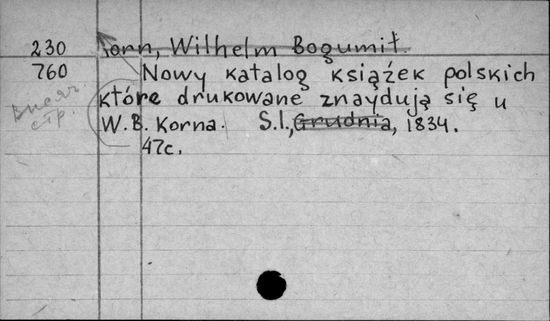 230 Korn, Wilhelm Bogumił.
760 Nowy katalog książek polskich
które drukowane znaydują się u
W.B. Korna. S.l., Grudnia, 1834.
47c.
стр.